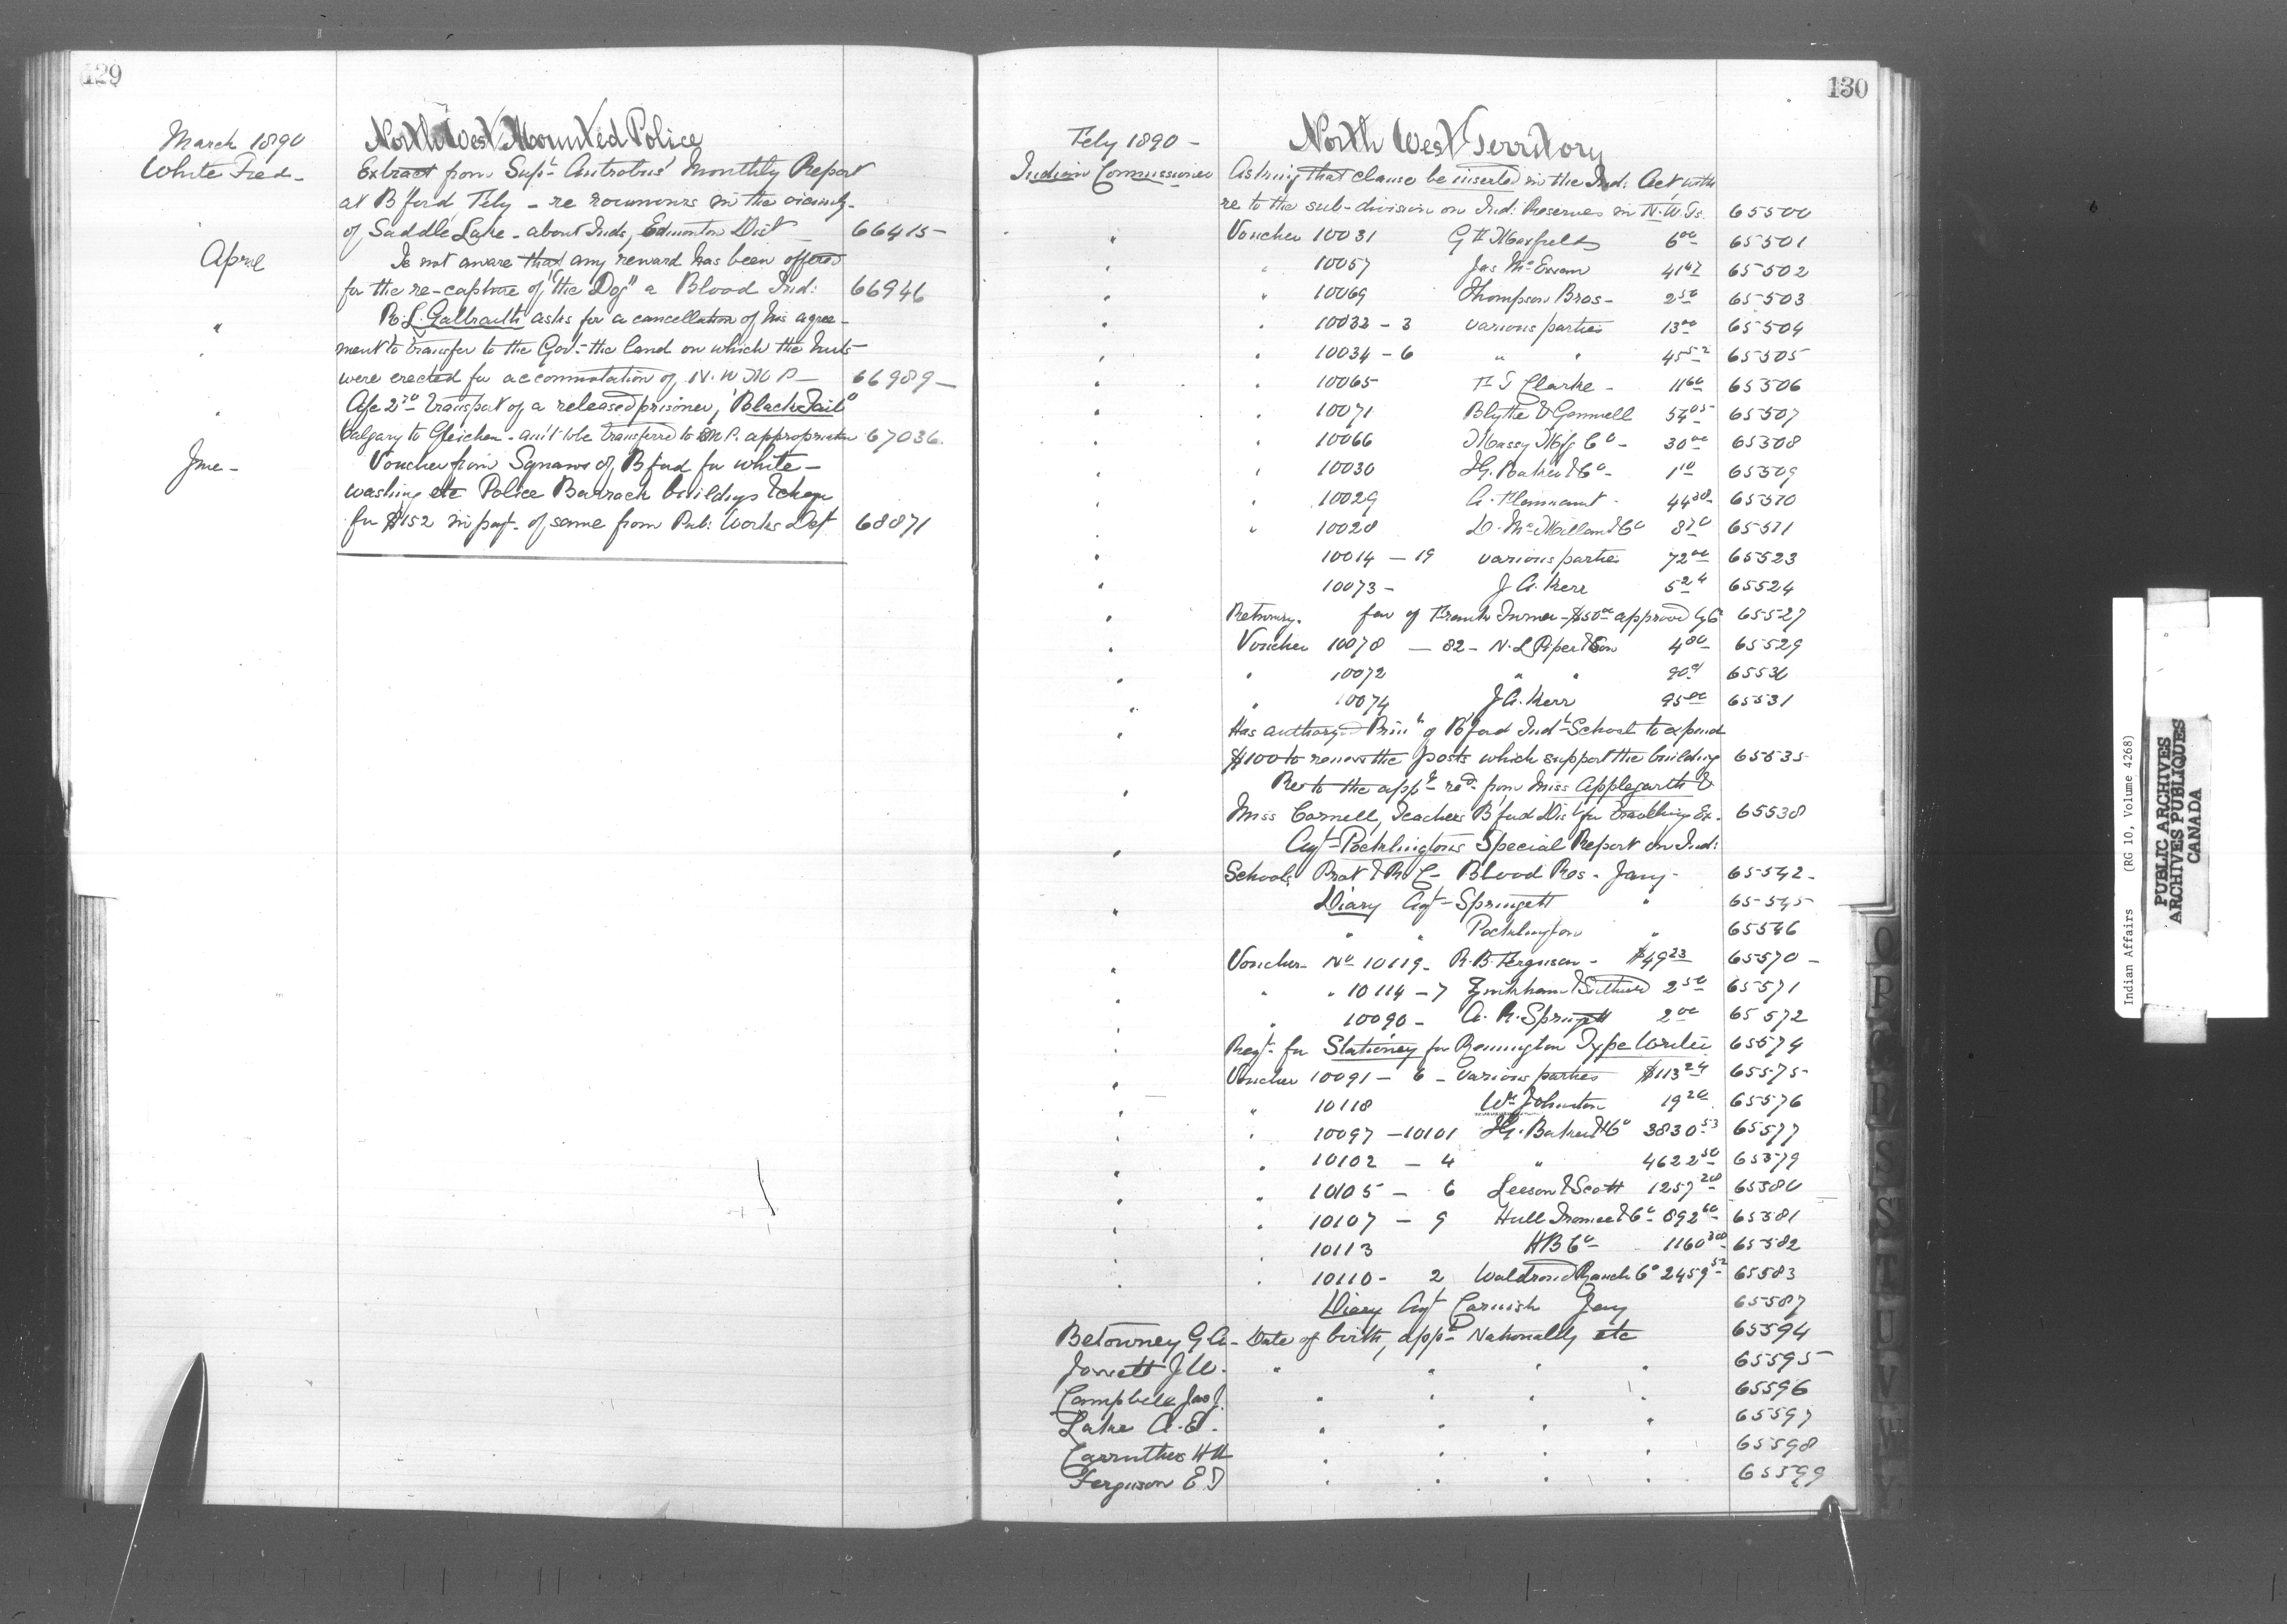 129
March 1890 North West Mounted Police
White Fred - Extract from Supt Antrobus' Monthly Report
at B'ford, Feby - re rumours in the vicinity
of Saddle Lake - about Inds, Edmonton Dist 66415
April Is not aware that any reward has been offered
for the re-capture of "the Dog" a Blood Ind: 66946
" R. L. Galbraith asks for a cancellation of his agree-
ment to transfer to the Govt the land on which the huts
were erected for accommodation of N.W.M.P. 66989
" transport of a released prisoner, "Black Tail"
Calgary to Gleichen - am't to be transferred to appropriation 67036
June - Voucher from Squaws of B'ford for white-
washing etc Police Barrack buildings & cheque
for $152 in payt of same from Pub: Works Dept 68871
130
Feby 1890 - North West Territory
Indian Commissioner Asking that clause be inserted in the Ind: Act with
re to the sub-division on Ind: Reserves in N.W.Ts. 65500
" Voucher 10031 G H Maxfield 6 00 65501
" " 10057 Jas McEwan 65502
" " 10069 Thompson Bros - 2 50 65503
" " 10032 - 3 various parties 13 00 65504
" " 10034 - 6 " " 45 52 65505
" " 10065 Clarke - 11 60 65506
" " 10071 Blythe & Gemmell 54 05 65507
" " 10066 Massey Mfg Co - 30 00 65508
" " 10030 I.G. Baker & Co - 1 10 65509
" " 10029 A. 44 65510
" " 10028 D. McMillan & Co 65511
" 10014 - 19 various parties 72 00 65523
" 10073 - J A. Kerr 5 24 65524
" Returning $50 00 approved 65527
" Voucher 10078 - 82 - N. L. Piper & Son 4 80 65529
" " 10072 " " 65530
" " 10074 J A. Kerr 95 00 65531
" Has authorized Prin of B'ford Indl School to expend
$100 to renew the posts which support the building 65535
" Re to the appn recd from Miss Applegarth &
Miss Cornell, Teachers B'ford Dist for travelling Ex. 65538
" Agt Pocklington's Special Report on Ind:
Schools Prot & R C - Blood Res - Jany - 65542
" Diary Agt Springett " 65545
" " Pocklington " 65546
" Voucher No 10119 - R. B. Ferguson - $49 23 65570
" " " 10114 - 7 2 50 65571
" " 10090 - A. R. Springett 2 00 65572
" Reqt for Stationey for Remington Type Writer 65574
" Voucher 10091 - 6 - various parties $113 24 65575
" " 10118 Wm Johnston 19 20 65576
" " 10097 - 10101 I.G. Baker & Co 3830 53 65577
" " 10102 - 4 " 4622 50 65579
" " 10105 - 6 Leeson & Scott 1257 65580
" " 10107 - 9 Hull & Co 892 60 65581
" " 10113 H B Co 1160 65582
" " 10110 - 2 Waldrond Ranch Co 2459 52 65583
Diary Agt Carnish Jany 65587
Betourney G A - Date of birth, appt Nationality etc 65594
Jowett J W. " " " " 65595
Campbell Jas J. " " " " 65596
Lake A. E. " " " " 65597
Carruthers H H " " " " 65598
Ferguson E D " " " " 65599
O
P
Q
R
S
T
U
V
W
Y
Indian Affairs (RG 10, Volume 4268)
PUBLIC ARCHIVES
ARCHIVES PUBLIQUES
CANADA